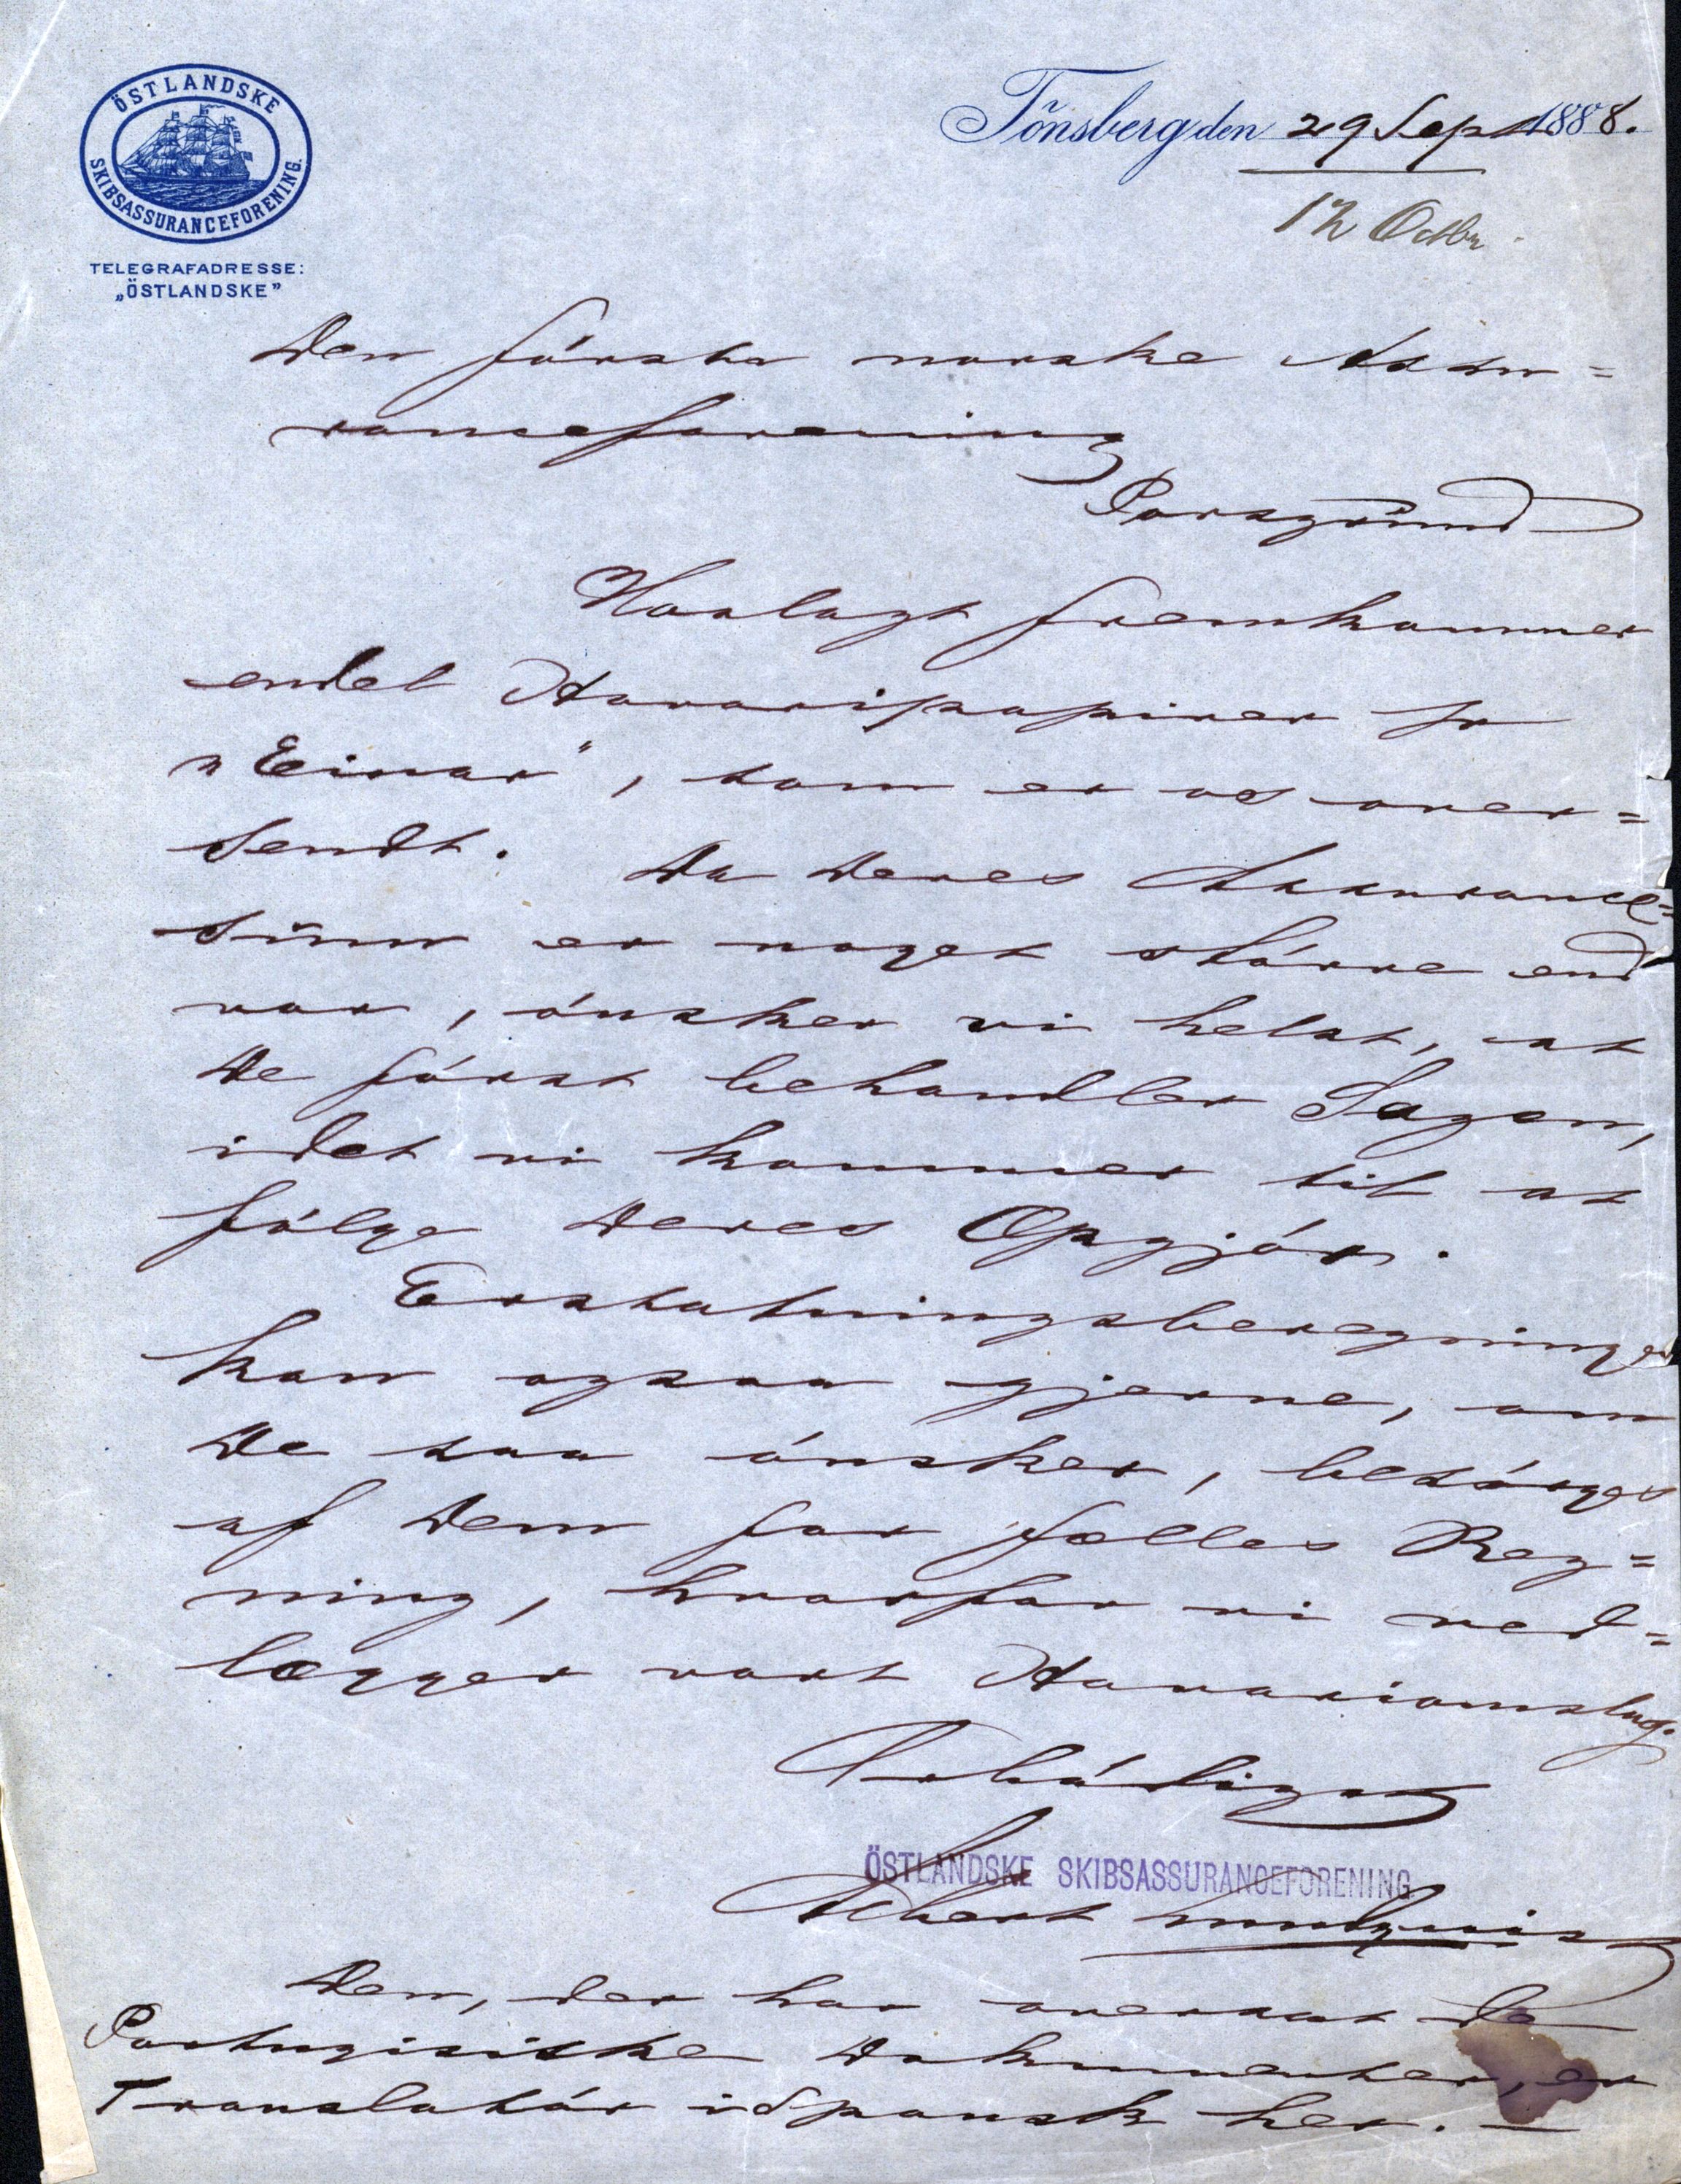 ÖSTLANDSKE
SKIBSASSURANCEFORENING.
TELEGRAFADRESSE:
„ÖSTLANDSKE”
Tönsberg den 29 Sept 1888.
12 Octbr
Den förste norske Assu=
ranceforening
Porsgrund
Vedlagt fremkommer
endel Havaripapirer fr
"Einar", som er os over=
sendt. Da Deres Assurance=
süm er noget större end
vor, önsker vi helst, at
De först behandler Sagen,
idet vi kommer til at
fölge Deres Opgjör.
Erstatningsberegningen
kan ogsaa gjerne, om
De saa önsker, besörges
af Dem for fælles Reg=
ning, hvorfor vi ved=
lægger vort Havariomslag.
Ærbödigst
ÖSTLANDSKE SKIBSASSURANCEFORENING
Den, der har oversat de
Portugisiske Dokumenter, er
Translatör i Spansk her. —